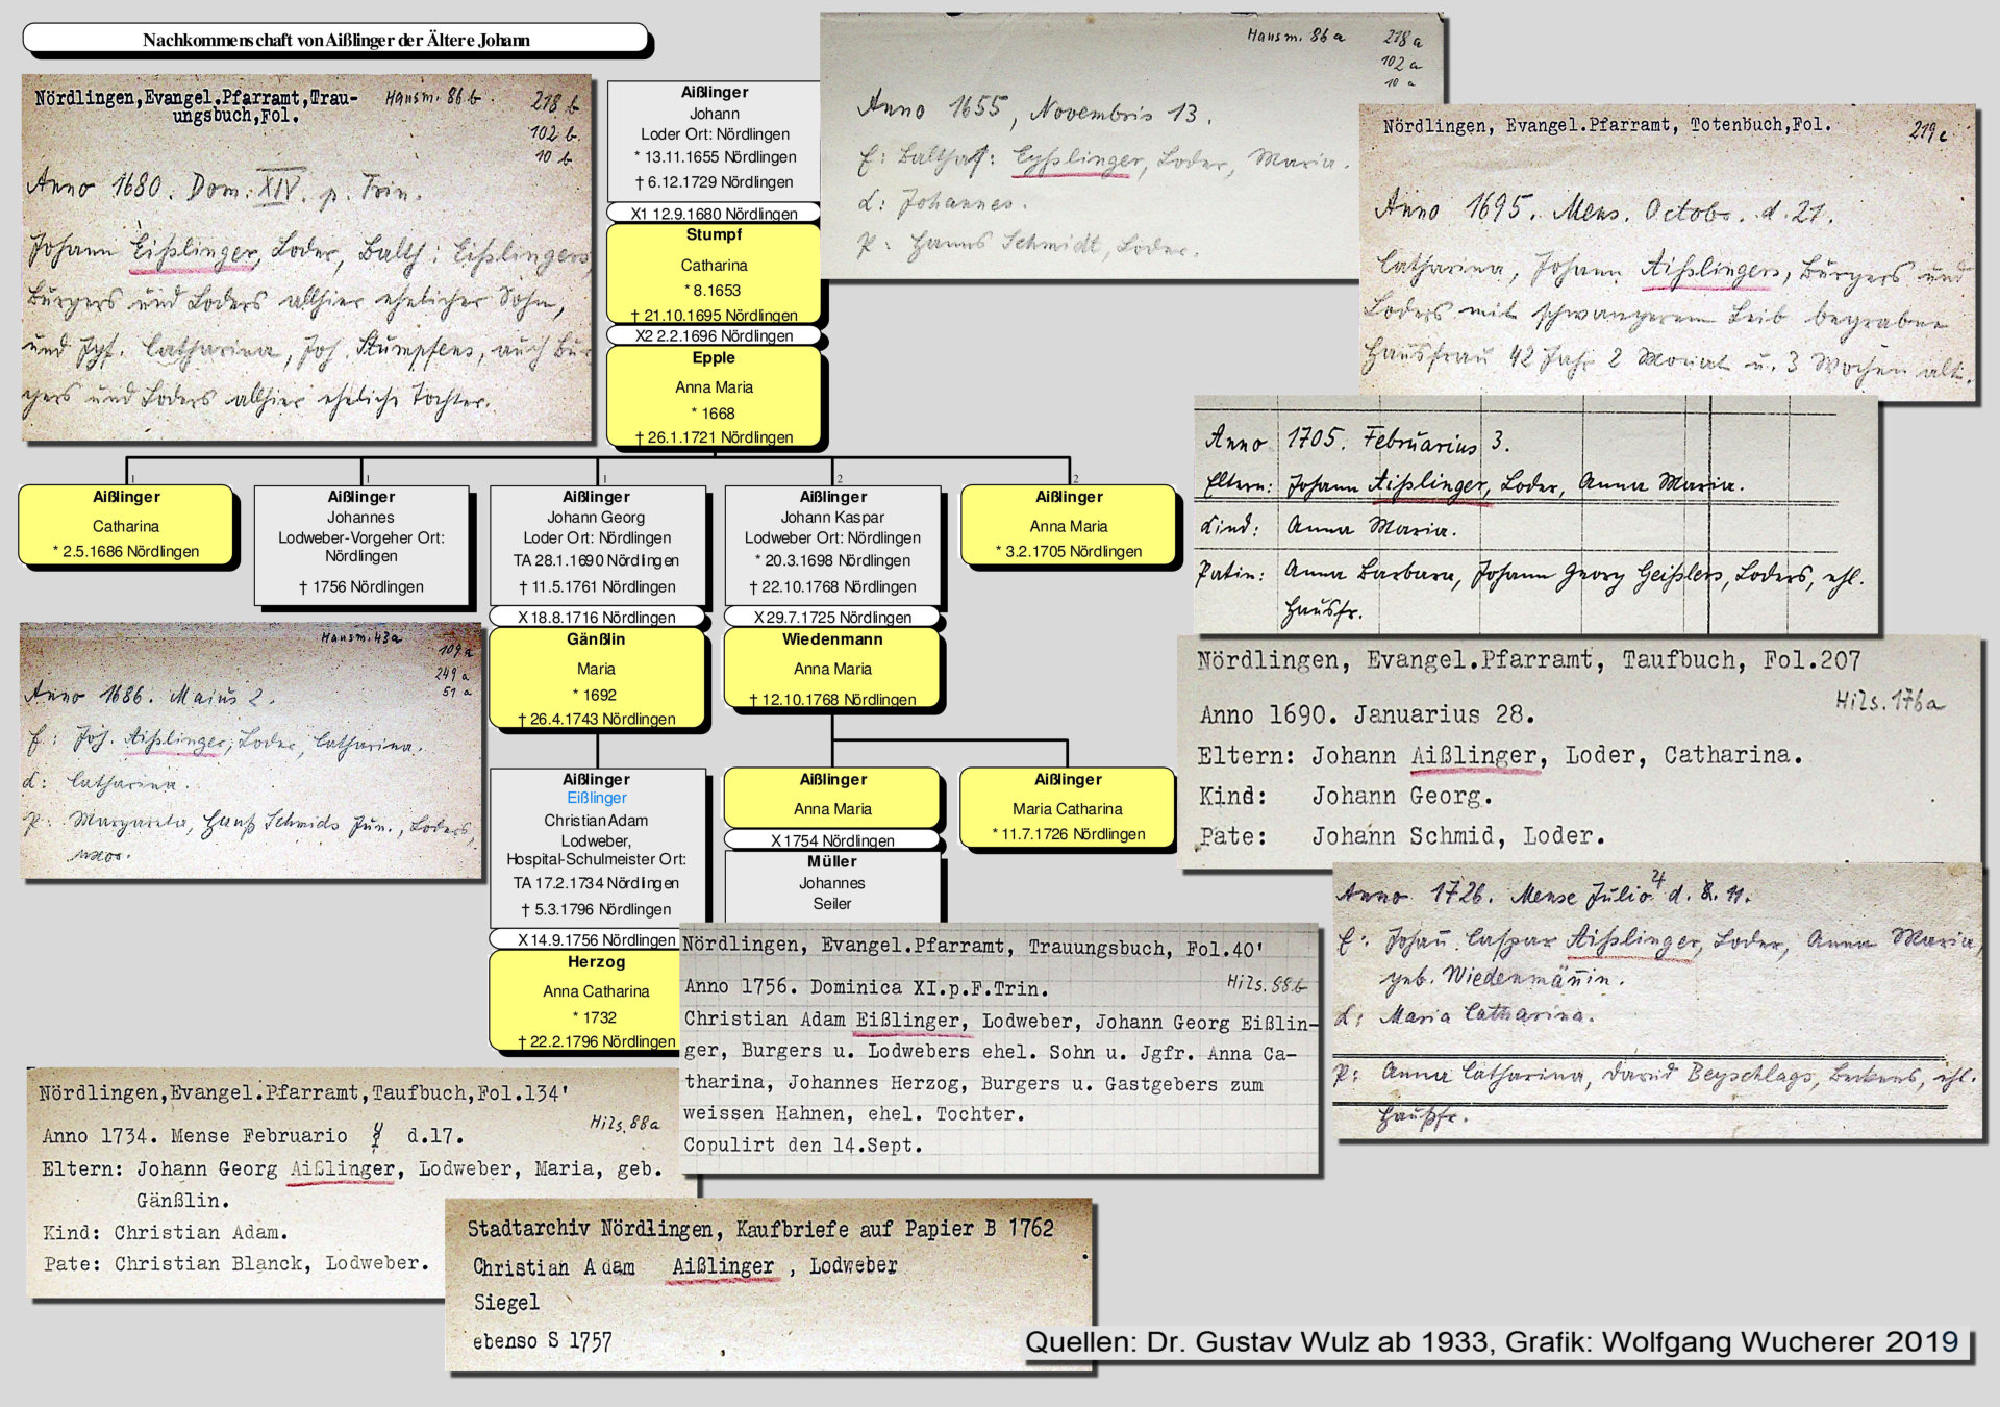 Nachkommenschaft von Aißlinger der Ältere Johann
Nördlingen,Evangel.Pfarramt,Trau-
ungsbuch,Fol.
Hansm. 86 b.
218 b
102 b
10 b
Anno 1680. Dom. XIV. p. Trin.
Johann Eißlinger, Loder, Balth: Eißlingers,
Burgers und Loders allhier ehelicher Sohn,
und Jgf. Catharina, Joh. Stumpfens, auch Bur-
gers und Loders allhier eheliche Tochter.
Aißlinger
Johann
Loder Ort: Nördlingen
* 13.11.1655 Nördlingen
† 6.12.1729 Nördlingen
X1 12.9.1680 Nördlingen
Stumpf
Catharina
* 8.1653
† 21.10.1695 Nördlingen
X2 2.2.1696 Nördlingen
Epple
Anna Maria
* 1668
† 26.1.1721 Nördlingen
Hansm. 86 a
218 a
102 a
10 a
Anno 1655, Novembris 13.
E: Balthas: Eyßlinger, Loder, Maria.
K: Johannes.
P: Hanns Schmidt, Loder.
Nördlingen, Evangel.Pfarramt, Totenbuch,Fol.
219 c
Anno 1695. Mens. Octobr. d. 21.
Catharina, Johann Aißlingers, Burgers und
Loders mit schwangerem Leib begrabne
Hausfrau 42 Jahr 2 Monat u. 3 Wochen alt.
1
Aißlinger
Catharina
* 2.5.1686 Nördlingen
1
Aißlinger
Johannes
Lodweber-Vorgeher Ort:
Nördlingen
† 1756 Nördlingen
1
Aißlinger
Johann Georg
Loder Ort: Nördlingen
TA 28.1.1690 Nördlingen
† 11.5.1761 Nördlingen
X 18.8.1716 Nördlingen
Gänßlin
Maria
* 1692
† 26.4.1743 Nördlingen
2
Aißlinger
Johann Kaspar
Lodweber Ort: Nördlingen
* 20.3.1698 Nördlingen
† 22.10.1768 Nördlingen
X 29.7.1725 Nördlingen
Wiedenmann
Anna Maria
† 12.10.1768 Nördlingen
2
Aißlinger
Anna Maria
* 3.2.1705 Nördlingen
Anno 1705. Februarius 3.
Eltern: Johann Aißlinger, Loder, Anna Maria.
Kind: Anna Maria.
Patin: Anna Barbara, Johann Georg Geißlers, Loders, ehl.
Hausfr.
Hansm. 43a
109 a
249 a
51 a
Anno 1686. Maius 2.
E: Joh. Aißlinger, Loder, Catharina.
K: Catharina.
P: Margareta, Hanß Schmids Jun., Loders,
uxor.
Nördlingen, Evangel.Pfarramt, Taufbuch, Fol.207
Hils. 176a
Anno 1690. Januarius 28.
Eltern: Johann Aißlinger, Loder, Catharina.
Kind: Johann Georg.
Pate: Johann Schmid, Loder.
Aißlinger
Eißlinger
Christian Adam
Lodweber,
Hospital-Schulmeister Ort:
TA 17.2.1734 Nördlingen
† 5.3.1796 Nördlingen
X 14.9.1756 Nördlingen
Herzog
Anna Catharina
* 1732
† 22.2.1796 Nördlingen
Aißlinger
Anna Maria
X 1754 Nördlingen
Müller
Johannes
Seiler
Aißlinger
Maria Catharina
* 11.7.1726 Nördlingen
Anno 1726. Mense Julio ♃ d. 11.
E: Johañ Caspar Aißlinger, Loder, Anna Maria,
geb. Wiedenmäñin.
K: Maria Catharina.
P: Anna Catharina, David Beyschlags, Beckens, ehl.
Haußfr.
Nördlingen, Evangel.Pfarramt, Trauungsbuch, Fol.40'
Hils. 88b
Anno 1756. Dominica XI.p.F.Trin.
Christian Adam Eißlinger, Lodweber, Johann Georg Eißlin-
ger, Burgers u. Lodwebers ehel. Sohn u. Jgfr. Anna Ca-
tharina, Johannes Herzog, Burgers u. Gastgebers zum
weissen Hahnen, ehel. Tochter.
Copulirt den 14.Sept.
Nördlingen,Evangel.Pfarramt,Taufbuch,Fol.134'
Hils. 88a
Anno 1734. Mense Februario ☿ d.17.
Eltern: Johann Georg Aißlinger, Lodweber, Maria, geb.
Gänßlin.
Kind: Christian Adam.
Pate: Christian Blanck, Lodweber.
Stadtarchiv Nördlingen, Kaufbriefe auf Papier B 1762
Christian Adam Aißlinger , Lodweber
Siegel
ebenso S 1757
Quellen: Dr. Gustav Wulz ab 1933, Grafik: Wolfgang Wucherer 2019